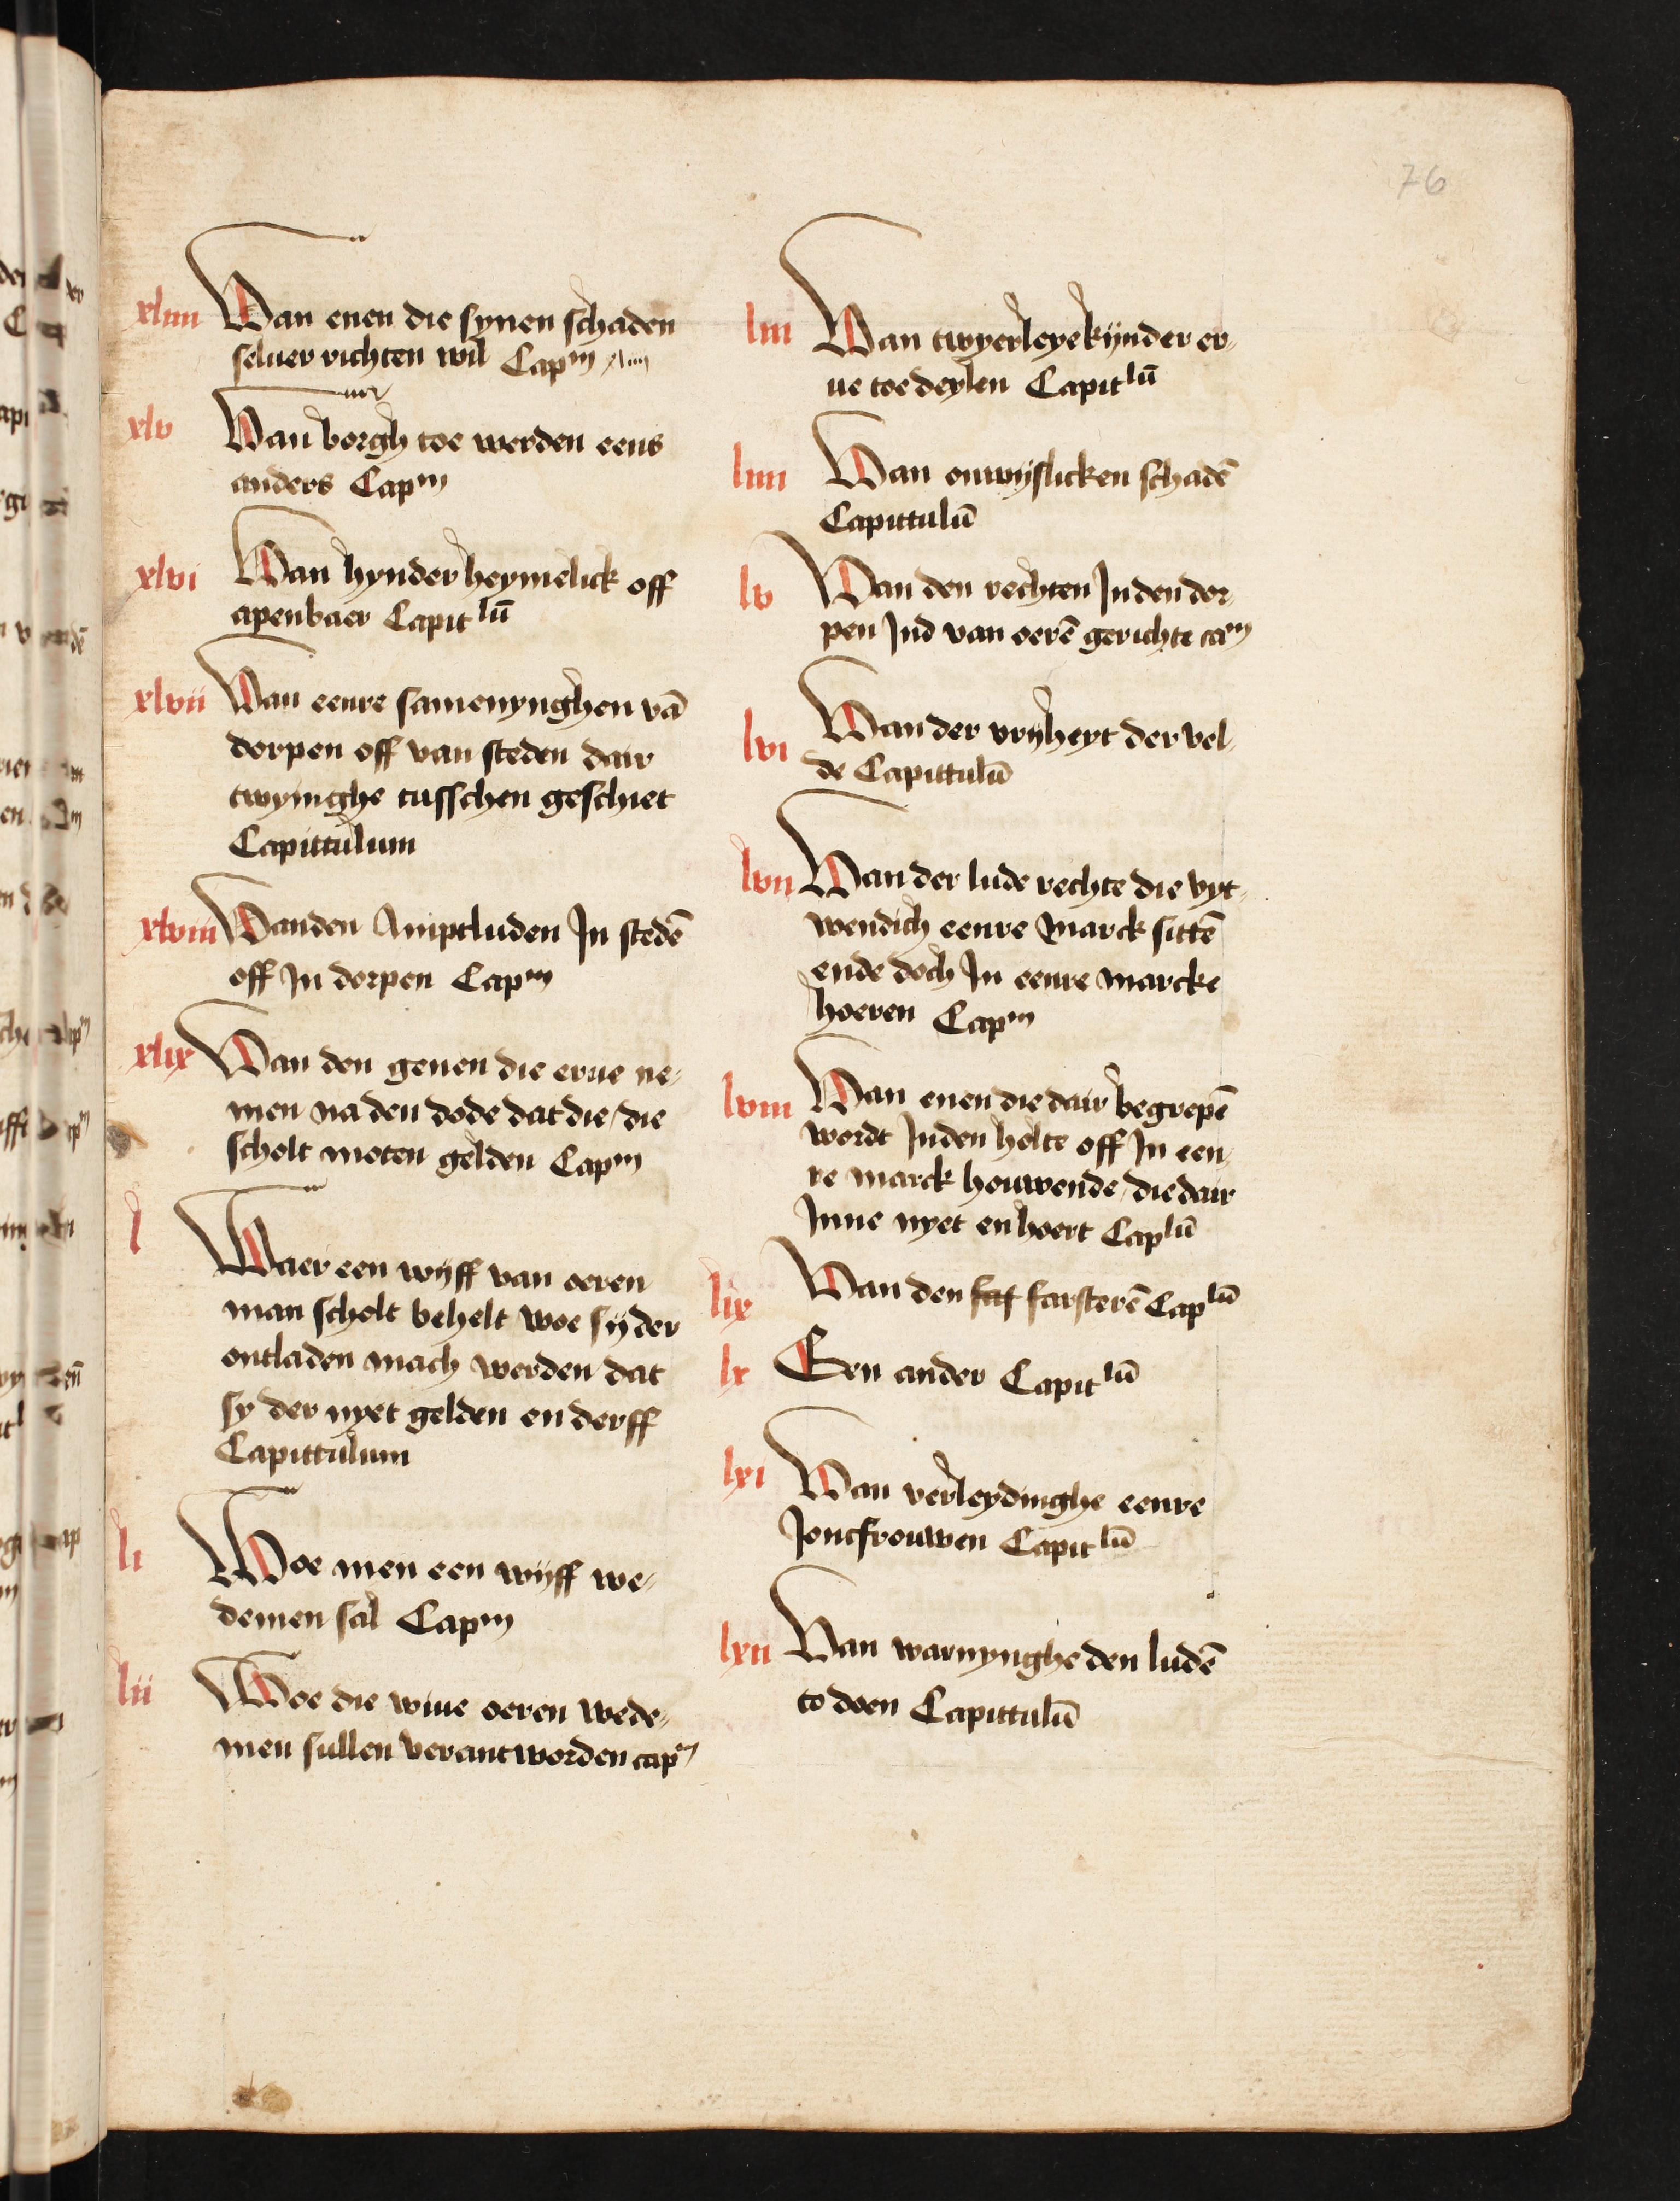 76
xliiii Van enen die synen schaden
seluer richten wil Capm xliiii
xlv Van borgh toe werden eens
anders Capm
xlvi Van hynder heymelick off
apenbaer Capitlū
xlvii Van eenre samenynghen vā
dorpen off van steden dair
twyinghe tusschen geschiet
Capittulum
xlviii Vanden Amptluden In stedē
off In dorpen Capm
xlix Van den genen die erue ne⸗
men na den dode dat die / die
scholt moten gelden Capm
l Waer een wijff van oeren
man scholt behelt woe sij der
ontladen mach werden dat
sy der nyet gelden en derff
Capittulum
li Woe men een wijff we⸗
demen sal Capm
lii Woe die wiue oeren wede⸗
men sullen verantworden capm
liii Van twyerleye kijnder er⸗
ue toe deylen Capitlū
liiii Van onwijslicken schadē
Capittulū
lv Van den rechten Inden dor⸗
pen Ind van oerē gerichte cam
lvi Van der vrijheyt der vel⸗
de Capittulū
lvii Van der lude rechte die vyt⸗
wendich eenre Marck sittē
ende doch In eenre marcke
hoeren Capm
lviii Van enen die dair begrepē
wordt Inden holte off In een⸗
re marck houwende / die dair
Inne nyet en hoert Caplū
lix Van den faf farsterē Caplū
lx Een ander Capitlū
lxi Van verleydinghe eenre
Joncfrouwen Capitlū
lxii Van warnynghe den ludē
to doen Capittulū